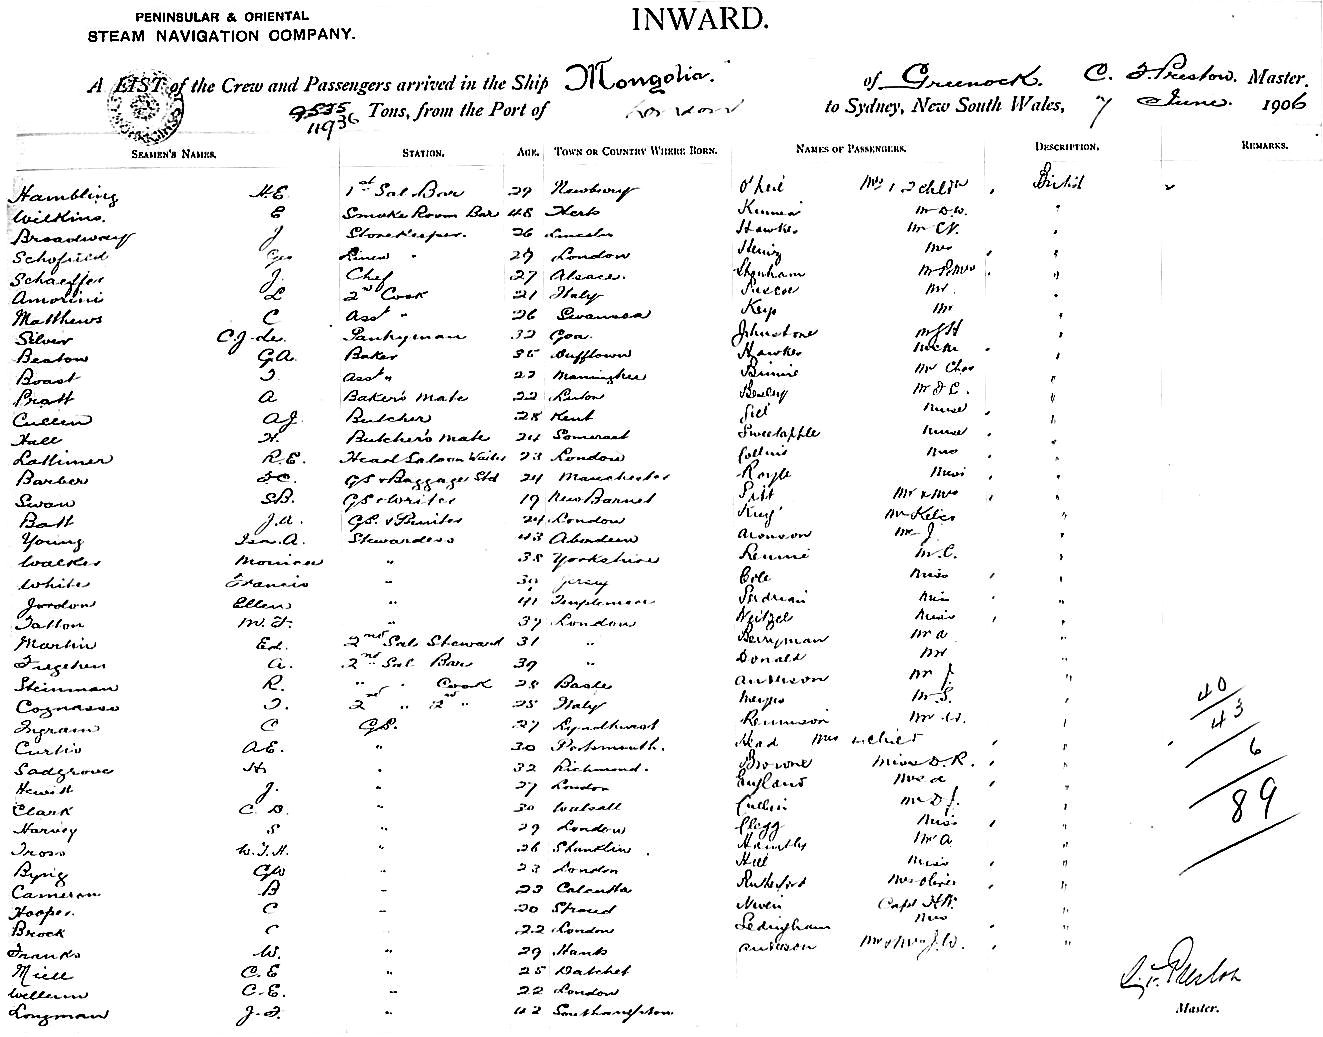 PENINSULAR & ORIENTAL
STEAM NAVIGATION COMPANY.
INWARD.
A LIST of the Crew and Passengers arrived in the Ship Mongolia. of Greenock. C. F. Preston. Master.
9535
11936 Tons, from the Port of London to Sydney, New South Wales, 7 June. 1906
SEAMEN'S NAMES. STATION. AGE. TOWN OR COUNTRY WHERE BORN. NAMES OF PASSENGERS. DESCRIPTION. REMARKS.
Hambling H.E. 1st Sal Bar 29 Newbury O'Neil Mrs 1 2 childn British
Wilkins. E Smoke Room Bar 48 Herts Mr D.W. "
Broadway J Storekeeper. 26 Lincoln Hawkes Mr C.V. "
Schofield Geo Linen " 29 London Henry Mrs "
Schaeffer J. Chef 27 Alsace. Mr & Mrs "
Amorini L 2nd Cook 21 Italy Pascoe Mr. "
Matthews C Asst " 26 Swansea Keys Mr "
Silver C.J. de Pantryman 32 Goa. Johnstone Mr J H "
Beaton G.A. Baker Dufftown Hawkes "
Boast T. Asst " 22 Binnie Mr Chas "
Pratt A Baker's Mate 22 "
Cullen A.J. Butcher 28 Kent Nurse "
Hall H. Butcher's Mate 24 Somerset Sweetapple Nurse "
Lattimer R.E. Head Saloon Waiter 23 London Collins Mrs "
Barber GS & Baggage Std 24 Manchester Royle Miss "
Swan S.B. GS & Writer 19 New Barnet Pitt Mr & Mrs "
Batt J.A. GS. & Printer 24 London King Mr "
Young Isa. A. Stewardess 43 Aberdeen Aronson Mr J. "
Walker " 38 Yorkshire Rennie M.C. "
White Francis 30 Jersey Cole Miss "
Jordon Ellen " 41 Templemore Miss "
Tatton M.H. " 37 London Miss "
Martin Ed. 2nd Sal Steward 31 " Berryman Mr A "
Tregehen A. 2nd Sal Bar 39 " Donald Mr "
Steinman R. " " Cook 28 Basle Anderson Mr J. "
Cognasso T. 2nd " 2nd " 25 Italy Mr S. "
Ingram C G.S. 27 Lyndhurst Rennison Mr "
Curtis A.E. " 30 Portsmouth. Head Mrs & child "
Sadgrove H " 32 Richmond. Browne Miss D.R. "
Hewitt J. 27 London England Mrs A "
Clark C.D. " 30 Walsall Mr D J. "
Harvey S " 29 London Clegg Miss "
Tross W.J.H. " 26 Shanklin. Huntly Mr A "
Byng GW 23 London Hill Miss "
Cameron B " 23 Calcutta Rutherford Mrs Oliver "
Hooper. C " 20 Stroud Capt H.R. "
Brock C " 22 London Ledingham Mrs "
Franks W. " 29 Hants Anderson Mr & Mrs J.W. "
Miell C.E " 25 Datchet
C.E. " 22 London
Longman J.F. " 42 Southampton
40
43
6
89
C. F. Preston
Master.